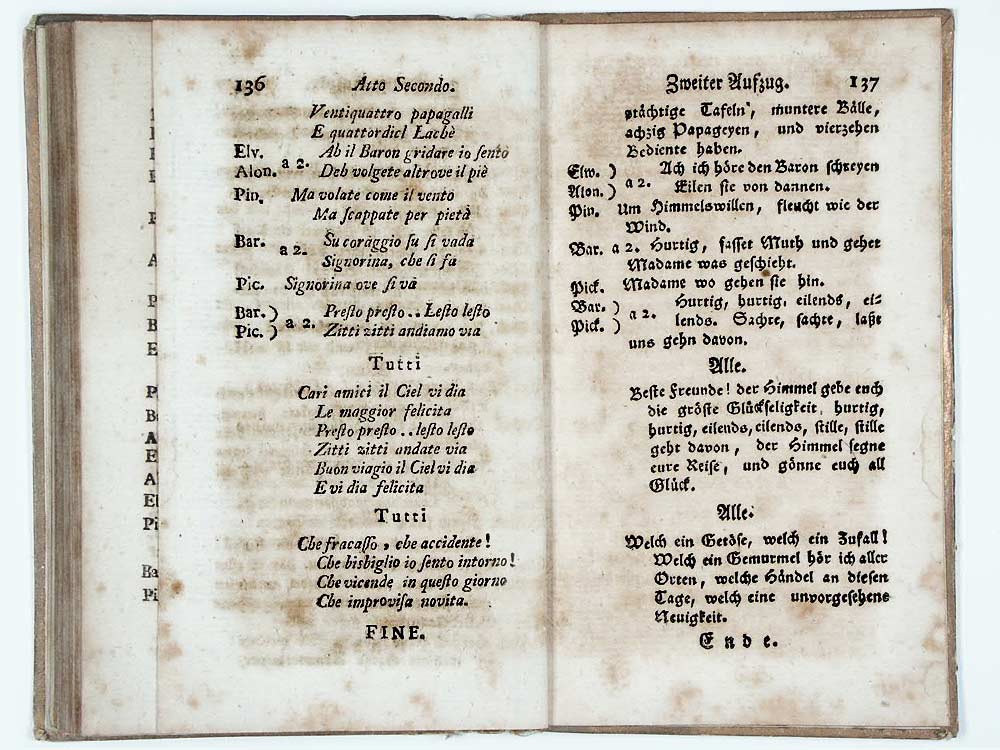 136 Atto Secondo.
Ventiquattro papagalli
E quattordici Lachè
Elv. ) a 2. Ah il Baron gridare io sento
Alon. Deh volgete altrove il piè
Pin. Ma volate come il vento
Ma scappate per pietà
Bar. a 2. Su coraggio su si vada
Signorina, che si fa
Pic. Signorina ove si và
Bar. ) a 2. Presto presto.. Lesto lesto
Pic. ) Zitti zitti andiamo via
Tutti
Cari amici il Ciel vi dia
Le maggior felicita
Presto presto..lesto lesto
Zitti zitti andate via
Buon viagio il Ciel vi dia
E vi dia felicita
Tutti
Che fracasso, che accidente!
Che bisbiglio io sento intorno!
Che vicende in questo giorno
Che improvisa novita.
FINE.
Zweiter Aufzug. 137
prächtige Tafeln, muntere Bälle,
achzig Papageyen, und vierzehen
Bediente haben.
Elw. ) a 2. Ach ich höre den Baron schreyen
Alon. ) Eilen sie von dannen.
Pin. Um Himmelswillen, fleucht wie der
Wind.
Bar. a 2. Hurtig, fasset Muth und gehet
Madame was geschieht.
Pick. Madame wo gehen sie hin.
Bar. ) a 2. Hurtig, hurtig, eilends, ei-
Pick. ) lends. Sachte, sachte, laßt
uns gehn davon.
Alle.
Beste Freunde! der Himmel gebe euch
die gröste Glückseligkeit, hurtig,
hurtig, eilends, eilends, stille, stille
geht davon, der Himmel segne
eure Reise, und gönne euch all
Glück.
Alle.
Welch ein Getöse, welch ein Zufall!
Welch ein Gemurmel hör ich aller
Orten, welche Händel an diesen
Tage, welch eine unvorgesehene
Neuigkeit.
Ende.